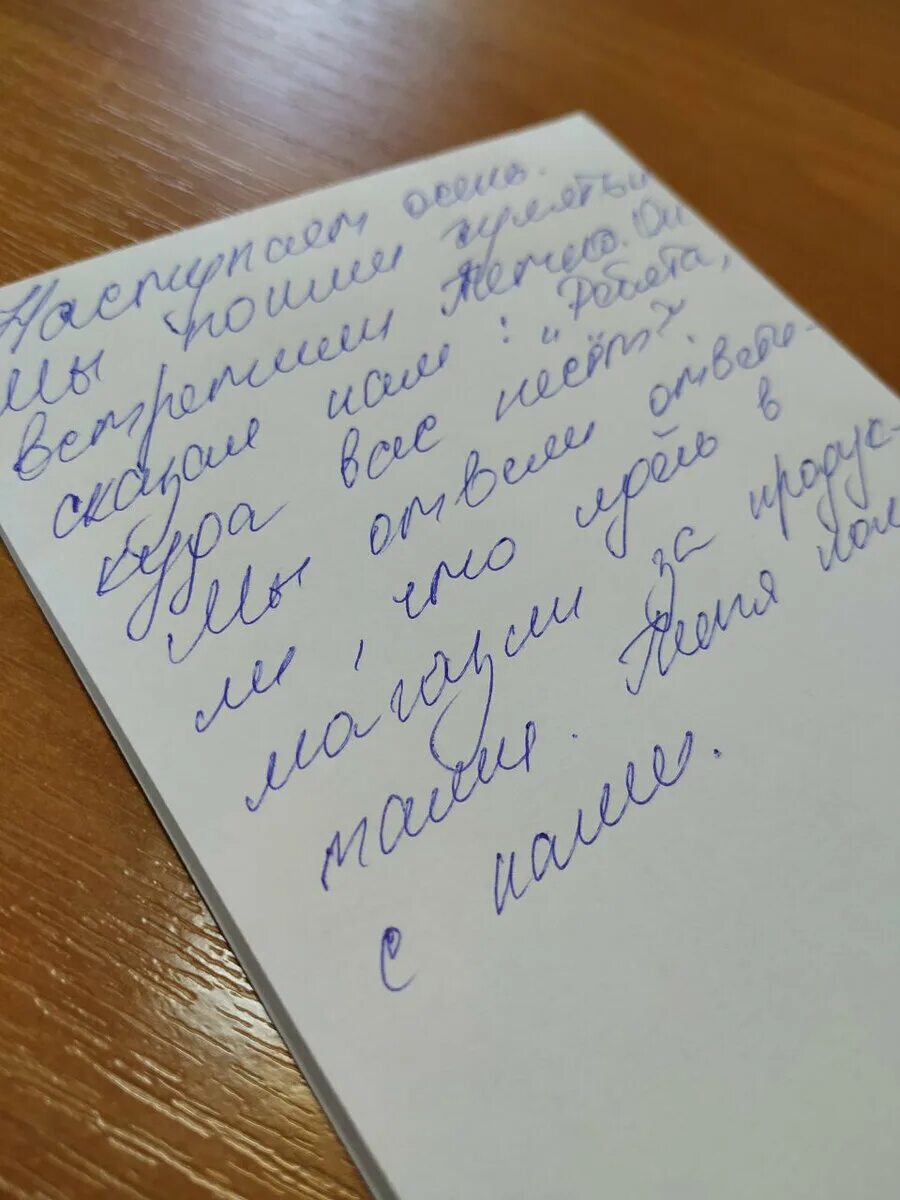 Наступает осень.
Мы пошли гулять и
встретили Петю. Он
сказал нам: „Ребята,
куда вас несёт?"
Мы ответили ответи-
ли, что в
магазин за продук-
тами. Петя
с нами.